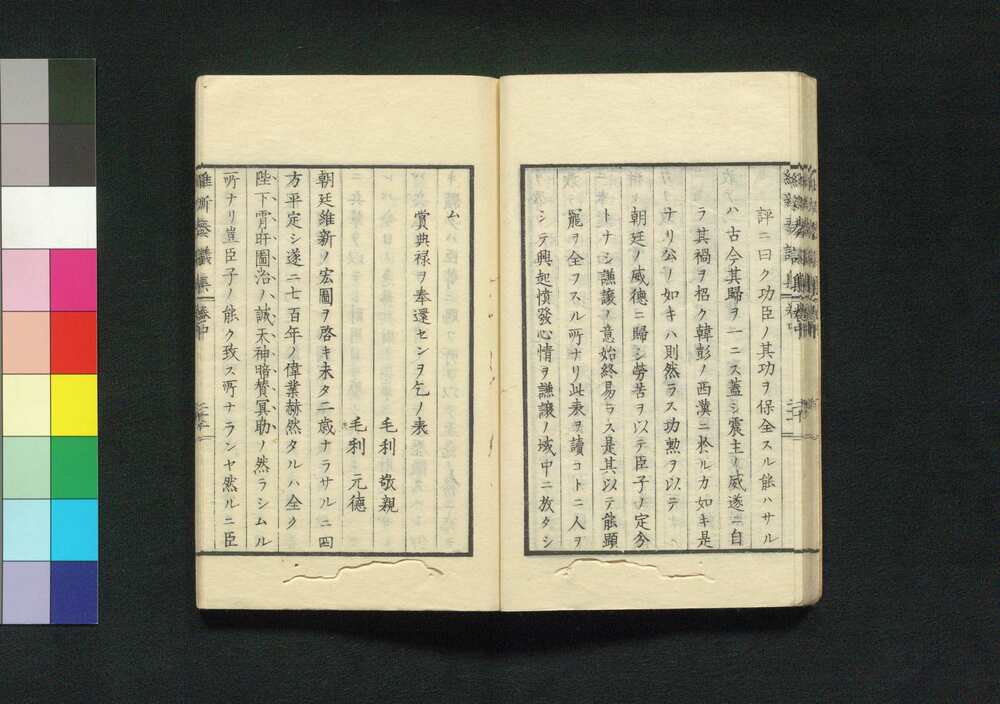 評ニ曰ク功臣ノ其功ヲ保全スル能ハサル
ハ古今其歸ヲ一ニス蓋シ震主ノ威遂ニ自
ラ其禍ヲ招ク韓彭ノ西漢ニ於ルカ如キ是
ナリ公ノ如キハ則然ラス功勲ヲ以テ
朝廷ノ威德ニ歸シ勞苦ヲ以テ臣子ノ定分
トナシ謙讓ノ意始終易ラス是其以テ能顯
寵ヲ全フスル所ナリ此表ヲ讀コトニ人ヲ
シテ興起憤發心情ヲ謙讓ノ域中ニ放タシ
ム
賞典禄ヲ奉還センヲ乞ノ表
毛利敬親
毛利元德
朝廷維新ノ宏圖ヲ啓キ未タ二歳ナラサルニ四
方平定シ遂ニ七百年ノ偉業赫然タルハ全ク
陛下宵旰圖治ハ誠天神暗賛冥助ノ然ラシムル
所ナリ豈臣子ノ能ク致ス所ナランヤ然ルニ臣